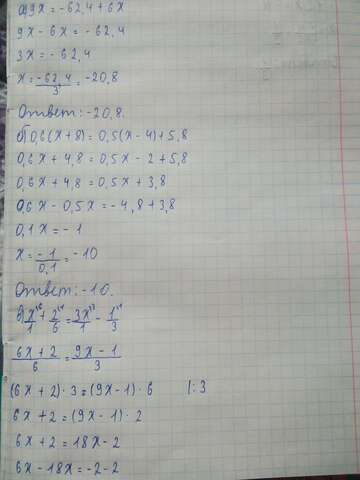 а) 9x = -62,4 + 6x
9x - 6x = -62,4
3x = -62,4
x = -62,4/3 = -20,8
Ответ: -20,8.
б) 0,6(x+8) = 0,5(x-4) + 5,8
0,6x + 4,8 = 0,5x - 2 + 5,8
0,6x + 4,8 = 0,5x + 3,8
0,6x - 0,5x = -4,8 + 3,8
0,1x = -1
x = -1/0,1 = -10
Ответ: -10.
в) x/1 + 2/6 = 3x/1 - 1/3
6x+2/6 = 9x-1/3
(6x+2)·3 = (9x-1)·6 |:3
6x+2 = (9x-1)·2
6x+2 = 18x-2
6x-18x = -2-2